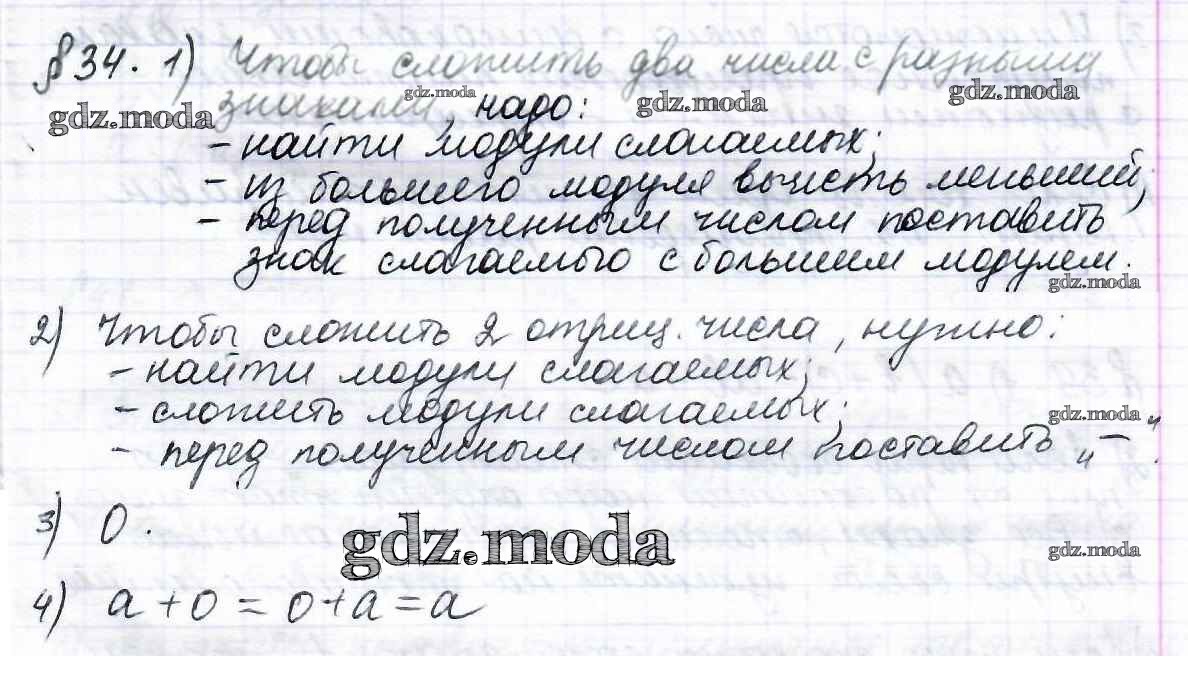 § 34. 1) Чтобы сложить два числа с разными
знаками, надо:
gdz.moda gdz.moda gdz.moda gdz.moda
- найти модули слагаемых;
- из большего модуля вычесть меньший;
- перед полученным числом поставить
знак слагаемого с большим модулем.
gdz.moda
2) Чтобы сложить 2 отриц. числа, нужно:
- найти модули слагаемых;
- сложить модули слагаемых;
gdz.moda
- перед полученным числом поставить „—“.
3) 0.
gdz.moda
gdz.moda
4) a + 0 = 0 + a = a